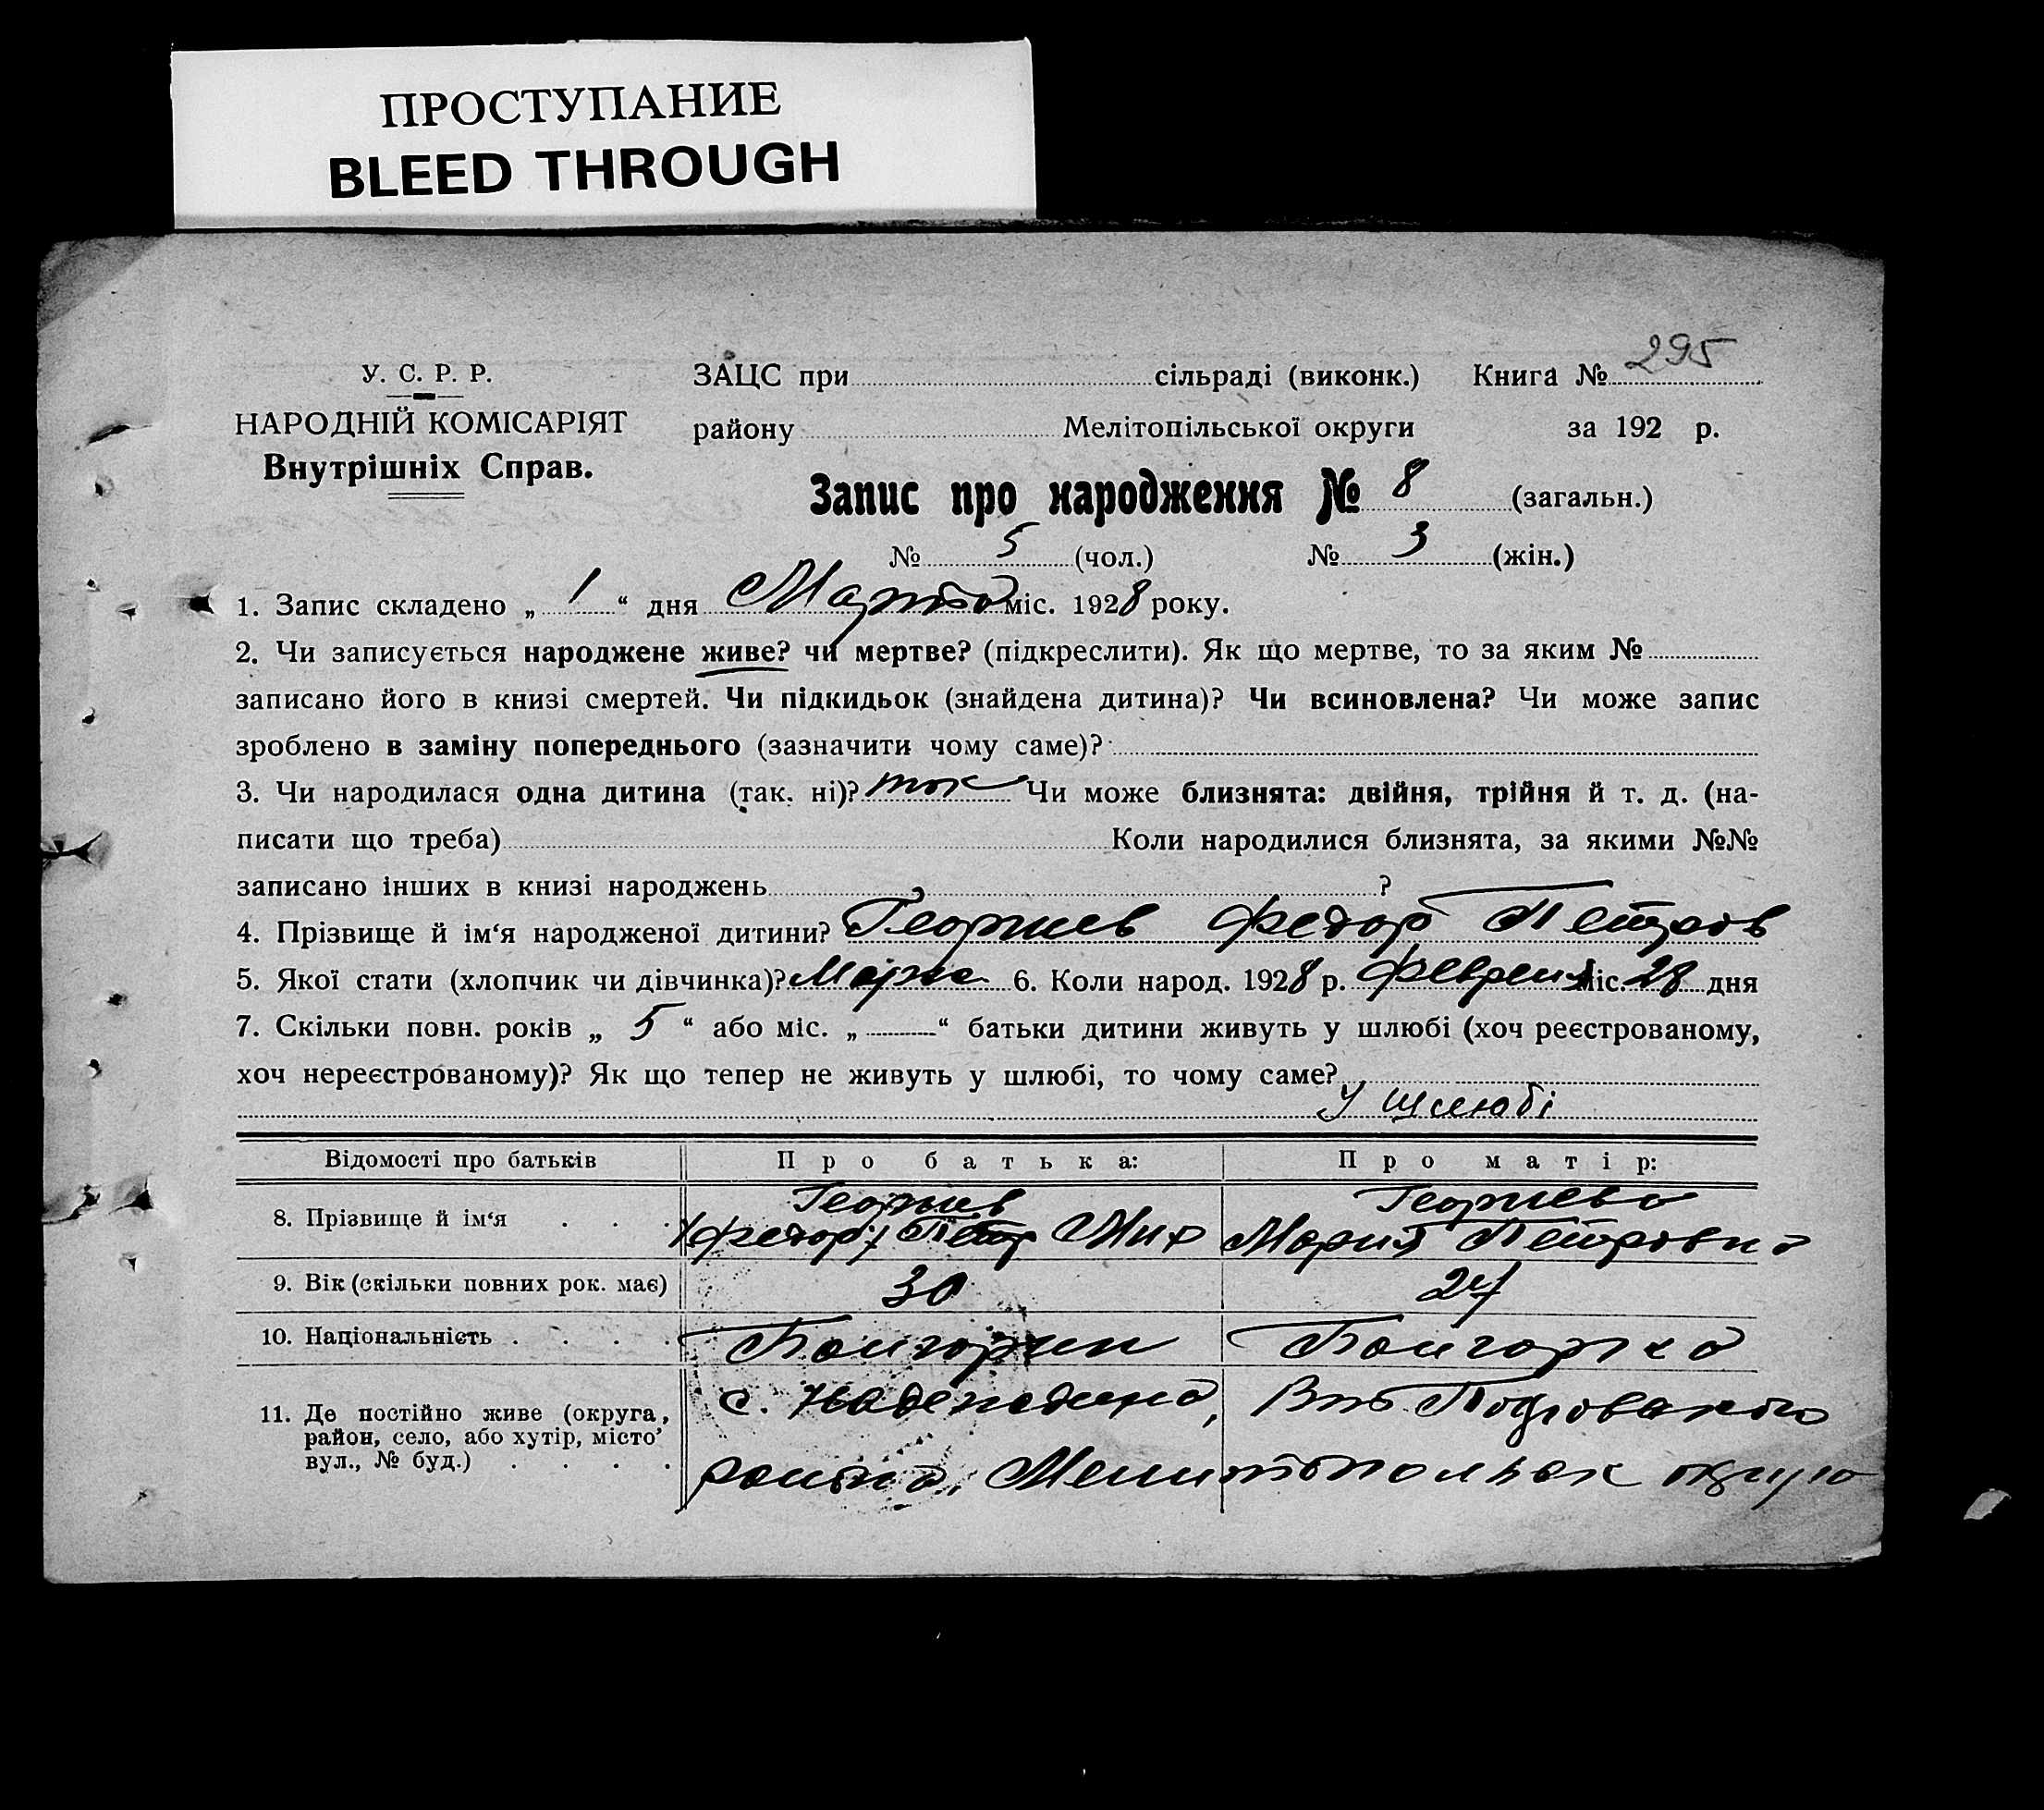 ПРОСТУПАНИЕ
BLEED THROUGH
295
У. С. Р. Р.
НАРОДНІЙ КОМІСАРІЯТ
Внутрішніх Справ.
ЗАЦС при сільраді (виконк.) Книга №
району Мелітопільської округи за 192 р.
Запис про народження № 8 (загальн.)
№ 5 (чол.) № 3 (жін.)
1. Запис складено „ 1 “ дня Марта міс. 1928 року.
2. Чи записується народжене живе? чи мертве? (підкреслити). Як що мертве, то за яким №
записано його в книзі смертей. Чи підкидьок (знайдена дитина)? Чи всиновлена? Чи може запис
зроблено в заміну попереднього (зазначити чому саме)?
3. Чи народилася одна дитина (так, ні)? так Чи може близнята: двійня, трійня й т. д. (на-
писати що треба) Коли народилися близнята, за якими №№
записано інших в книзі народжень ?
4. Прізвище й ім‘я народженої дитини? Георгиев Федор Петров
5. Якої стати (хлопчик чи дівчинка)? 6. Коли народ. 1928 р. февраля міс. 28 дня
7. Скільки повн. років „ 5 “ або міс. „ “ батьки дитини живуть у шлюбі (хоч реєстрованому,
хоч нереєстрованому)? Як що тепер не живуть у шлюбі, то чому саме?
У шлюбі
Відомості про батьків Про батька: Про матір:
8. Прізвище й ім‘я Георгиев Георгиева
(Федор) Петр Мих Мария Петровна
9. Вік (скільки повних рок. має) 30 24
10. Національність Болгарин Болгарка
11. Де постійно живе (округа, район, село, або хутір, місто, вул., № буд.) с. Надеждино,
района, Мелитопольск округа